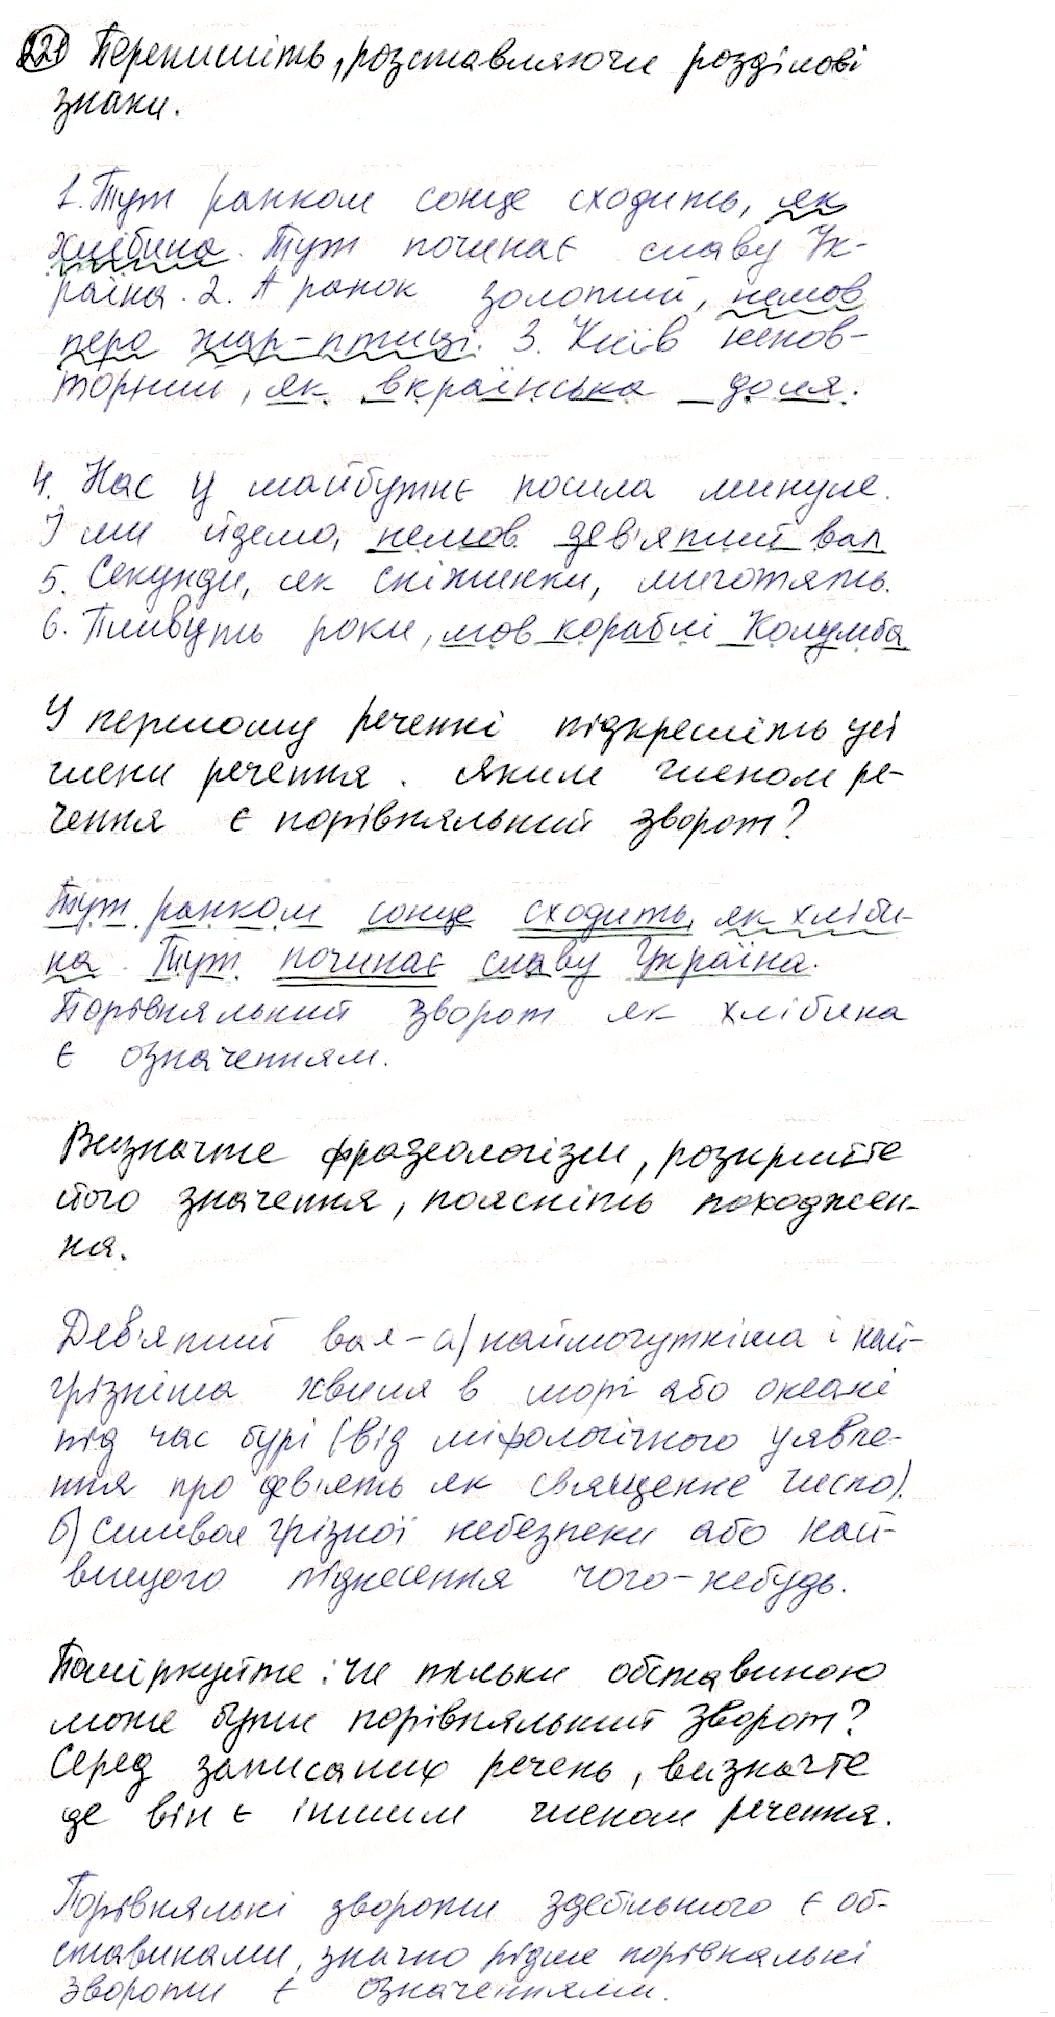 221 Перепишіть, розставляючи розділові
знаки.
1. Тут ранком сонце сходить, як
хлібина. Тут починає славу Ук-
раїна. 2. А ранок золотий, немов
перо жар-птиці. 3. Київ непов-
торний, як вкраїнська доля.
4. Нас у майбутнє посила минуле.
І ми йдемо, немов дев'ятий вал
5. Секунди, як сніжинки, миготять.
6. Пливуть роки, мов кораблі Колумба
У першому реченні підкресліть усі
члени речення. Яким членом ре-
чення є порівняльний зворот?
Тут ранком сонце сходить, як хліби-
на. Тут починає славу Україна.
Порівняльний зворот як хлібина
є означенням.
Визначте фразеологізм, розкрийте
його значення, поясніть походжен-
ня.
Дев'ятий вал - а) наймогутніша і най-
грізніша хвиля в морі або океані
під час бурі (від міфологічного уявле-
ння про дев'ять як священне число).
б) символ грізної небезпеки або най-
вищого піднесення чого-небудь.
Поміркуйте: чи тільки обставиною
може бути порівняльний зворот?
Серед записаних речень, визначте
де він є іншим членом речення.
Порівняльні звороти здебільшого є об-
ставинами, значно рідше порівняльні
звороти є означеннями.